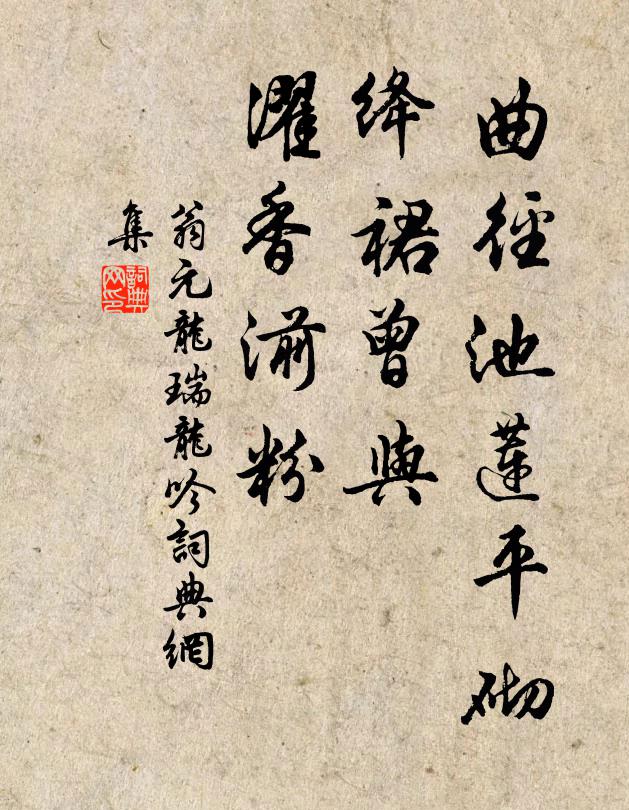 曲徑池蓮平砌
絳裙曾與
濯香湔粉
翁元龍瑞龍吟詞典網
集
詞典
网印